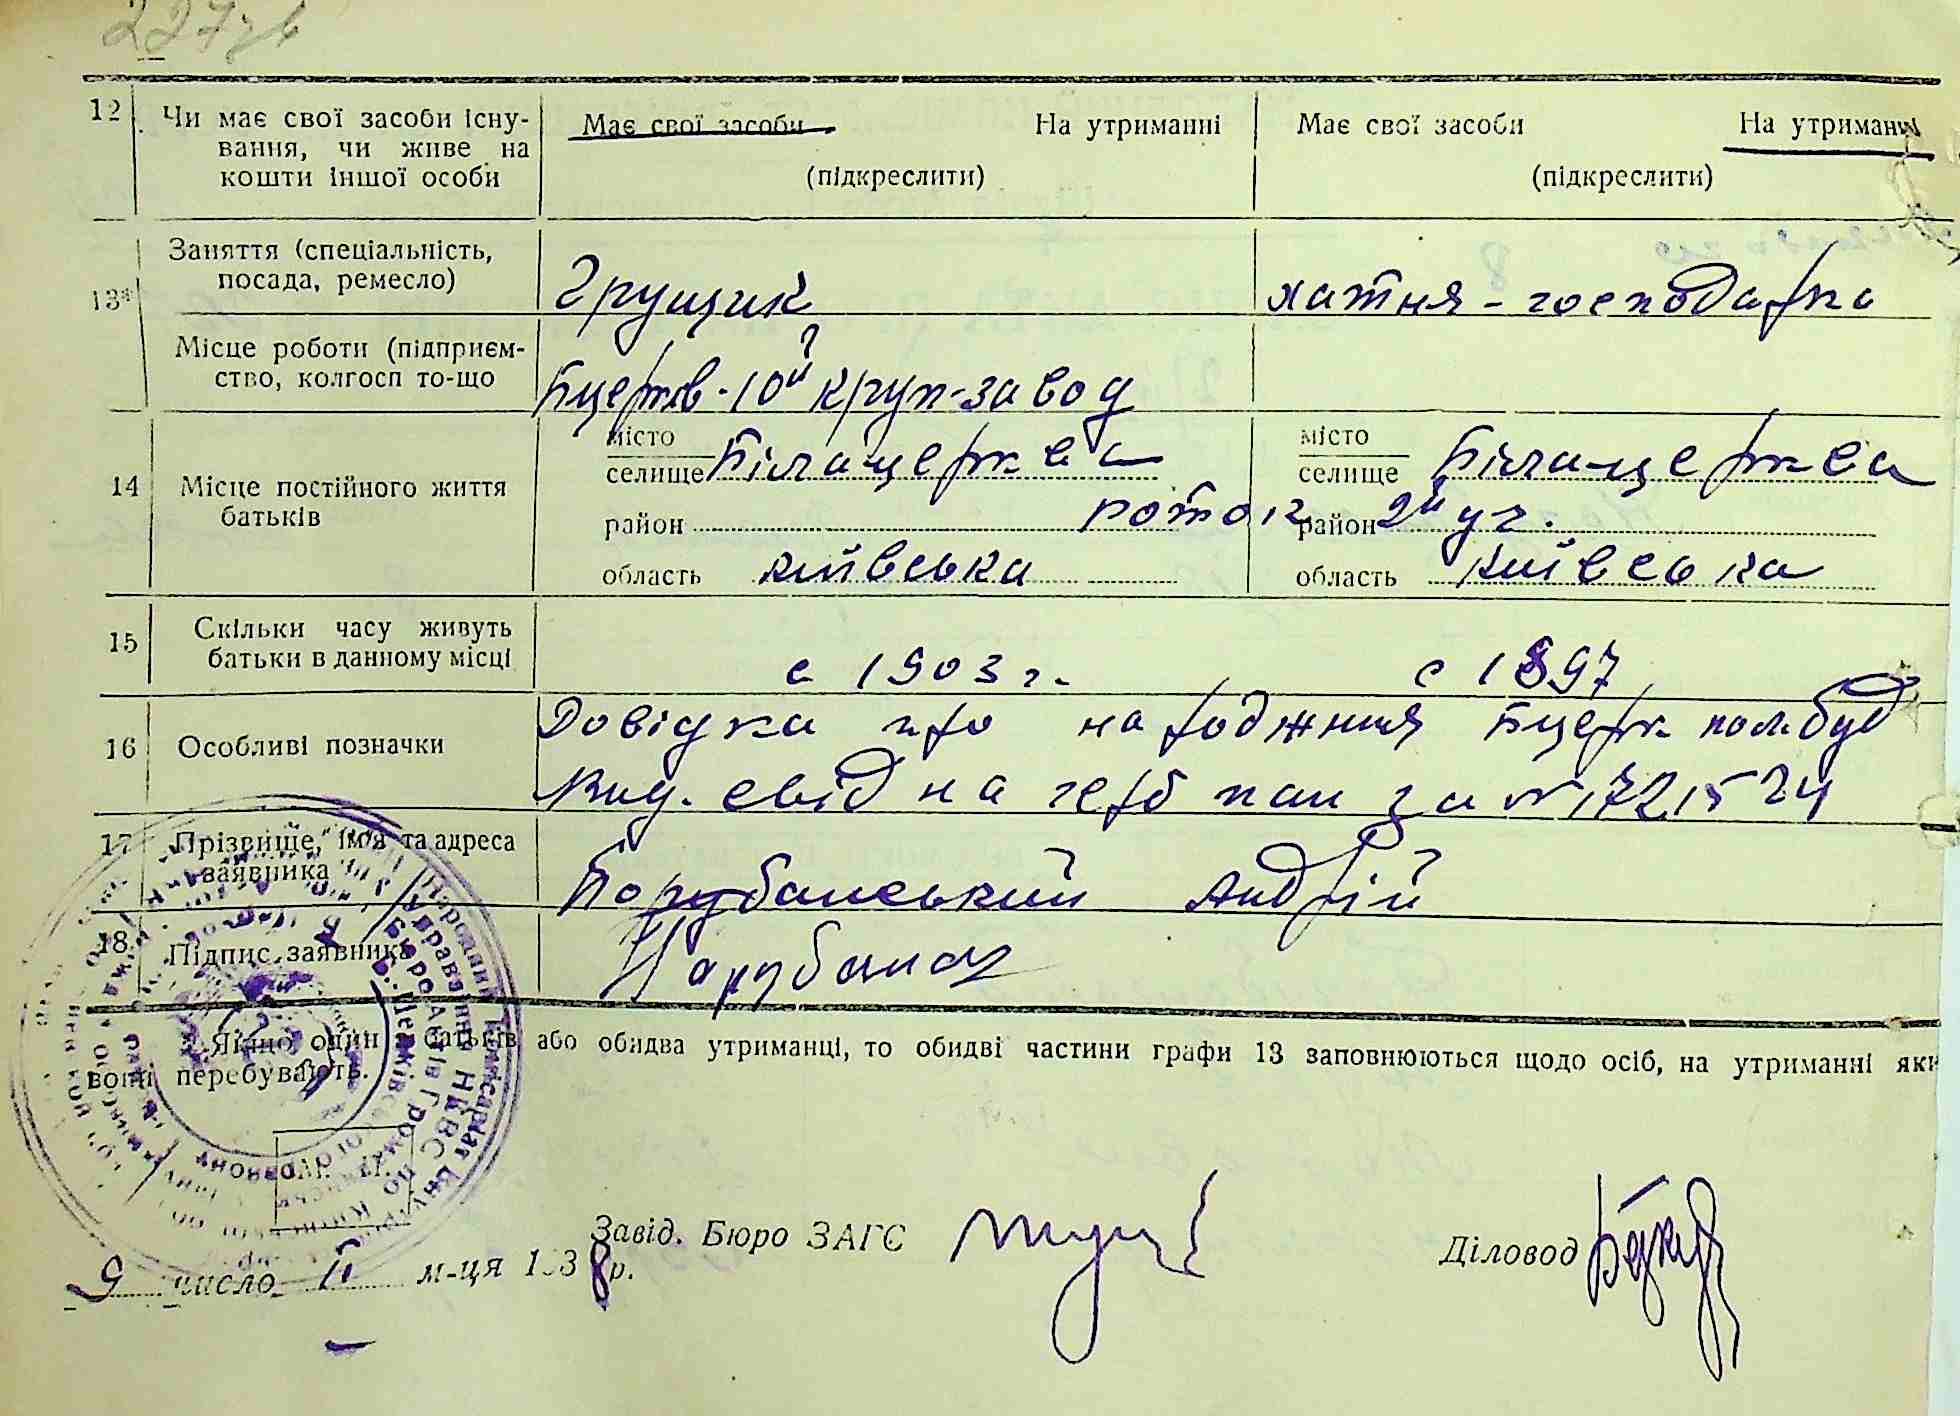 227зв
12 Чи має свої засоби існу-
вання, чи живе на
кошти іншої особи
Має свої засоби На утриманні
(підкреслити)
Має свої засоби На утриманні
(підкреслити)
13* Заняття (спеціальність,
посада, ремесло)
Грущик
хатня - господарка
Місце роботи (підприєм-
ство, колгосп то-що
Бцерків-10й круп-завод
14 Місце постійного життя
батьків
місто
селище Біла-церква
район
область київська
місто
селище Біла-церква
район 2й уч.
область київська
15 Скільки часу живуть
батьки в данному місці
с 1903 г.
с 1897
16 Особливі позначки
Довідка про народження Бцерк
Вид. свід на герб пап за №17215
17 Прізвище, ім'я та адреса
заявника
Андрій
18 Підпис заявника
Якщо один з батьків або обидва утриманці, то обидві частини графи 13 заповнюються щодо осіб, на утриманні яки
вони перебувають.
Народний Комісаріат Внутр
Управління НКВС по Київ
Бюро Актів Грома
Б.-Церківського району
9 число II м-ця 1938р.
Завід. Бюро ЗАГС
Діловод